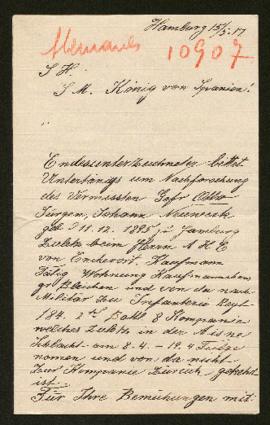 Hamburg 15/5.17
Alemania
10907
S. H.
S. M. König von Spanien!
Endesunterzeichneter bittet
Unterthänigst um Nachforschung
des Vermissten Gefr Otto
Jürgen, Johann
geb d 11. 12. 1895 zu Hamburg
Zuletzt beim Herrn A H E
von Kaufmann
tätig Wohnung Kaufmannshaus
gr Bleichen und von da nach
Militär Inf Regt
184. 2tes Batl 8 Kompanie
welcher zuletzt in der Aisne
Schlacht am 8.4. – 19.4 Teilge
nomen und von da nicht
zur Kompanie zurück gekehrt
ist.
Für Ihre Bemühungen mit